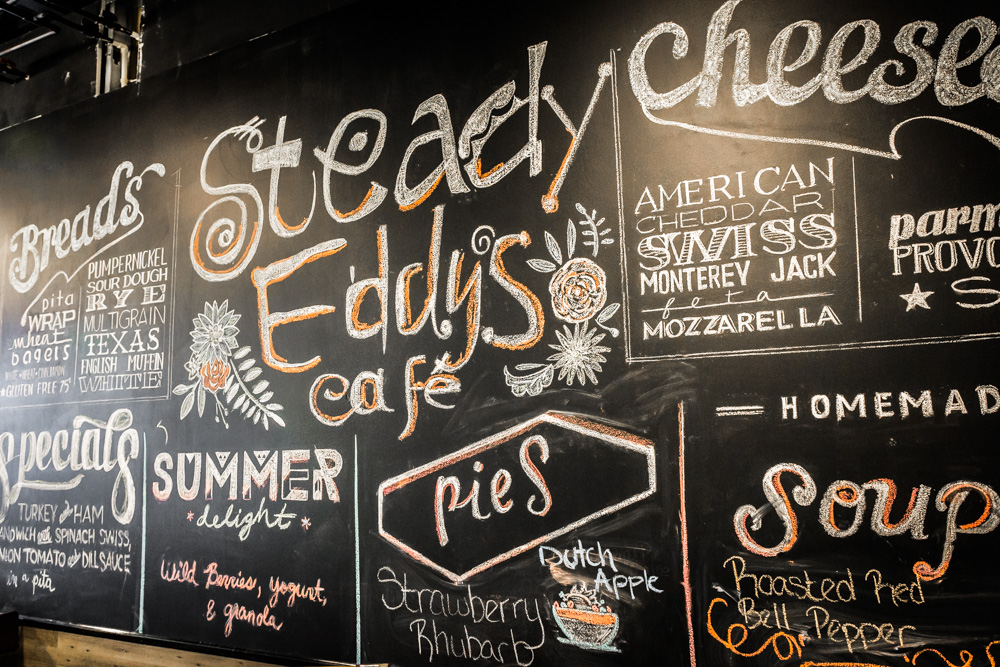 Steady
Eddy's
café
Breads
pita
WRAP
wheat
bagels
GLUTEN FREE 75¢
PUMPERNICKEL
SOUR DOUGH
RYE
MULTIGRAIN
TEXAS
ENGLISH MUFFIN
WHITE
Cheese
AMERICAN
CHEDDAR
SWISS
MONTEREY JACK
feta
MOZZARELLA
parm
PROVO
S
Specials
TURKEY and HAM
ANDWICH with SPINACH SWISS,
MON TOMATO and DILL SAUCE
in a pita
SUMMER
*delight*
Wild Berries, yogurt,
& granola
pies
Dutch
Apple
Strawberry
Rhubarb
HOMEMAD
Soup
Roasted Red
Bell Pepper
or